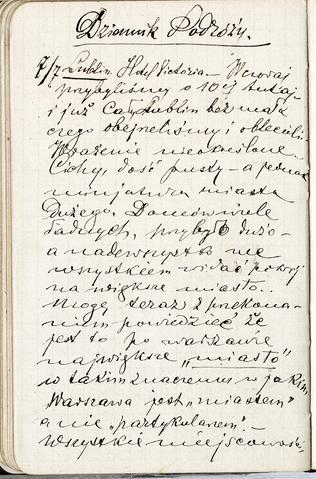 Dziennik Podróży.
7/7 Lublin. Hotel Victoria. — Wczoraj
przybyliśmy o 10ej tutaj
i już cały Lublin bez mała
czego obejrzeliśmy i oblecieli.
Wrażenie nieokreślone.
Cichy, dość pusty — a jednak
miniatura miasta
Dużego. Domów wiele
ładnych, przybyło dużo —
a nadewszystko we
wszystkiem widać pokrój
na większe miasto.
Mogę teraz z przekona-
niem powiedzieć że
jest to po warszawie
największe „miasto"
w takim znaczeniu w jakim
Warszawa jest „miastem"
a nie „partykularem". —
Wszystkie miejscowości,